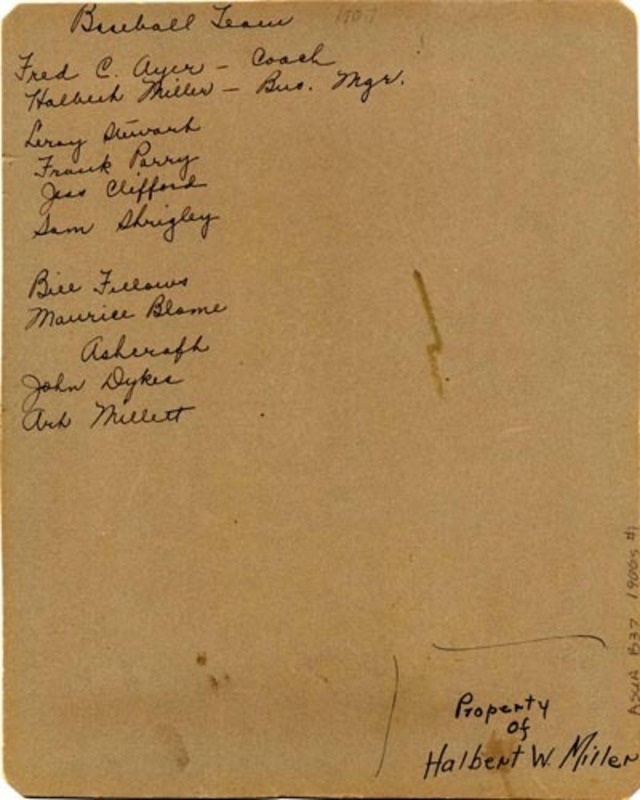 Baseball Team 1907
Fred C. Ayer – Coach
Halbert Miller – Bus. Mgr.
Leroy Stewart
Frank Parry
Jess Clifford
Sam Shrigley
Bill Fellows
Maurice Blame
Ashcraft
John Dykes
Art Millett
Property
of
Halbert W. Miller
ASUA B37 1900s #1